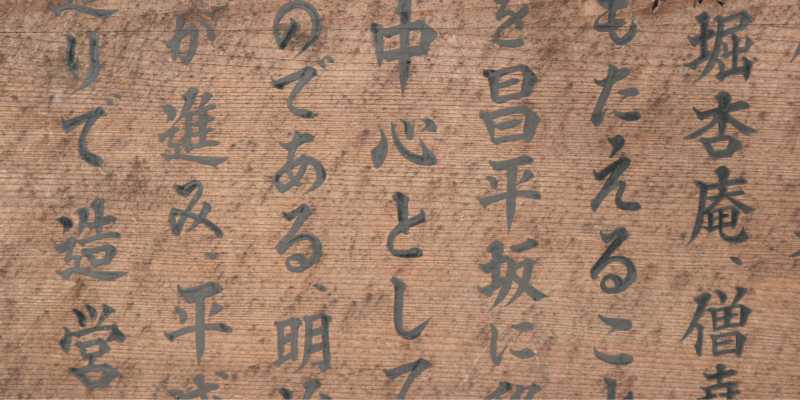 堀杏庵、僧
もたえるこ
を昌平坂に
中心として
のである、明
が進み、平
りで造営